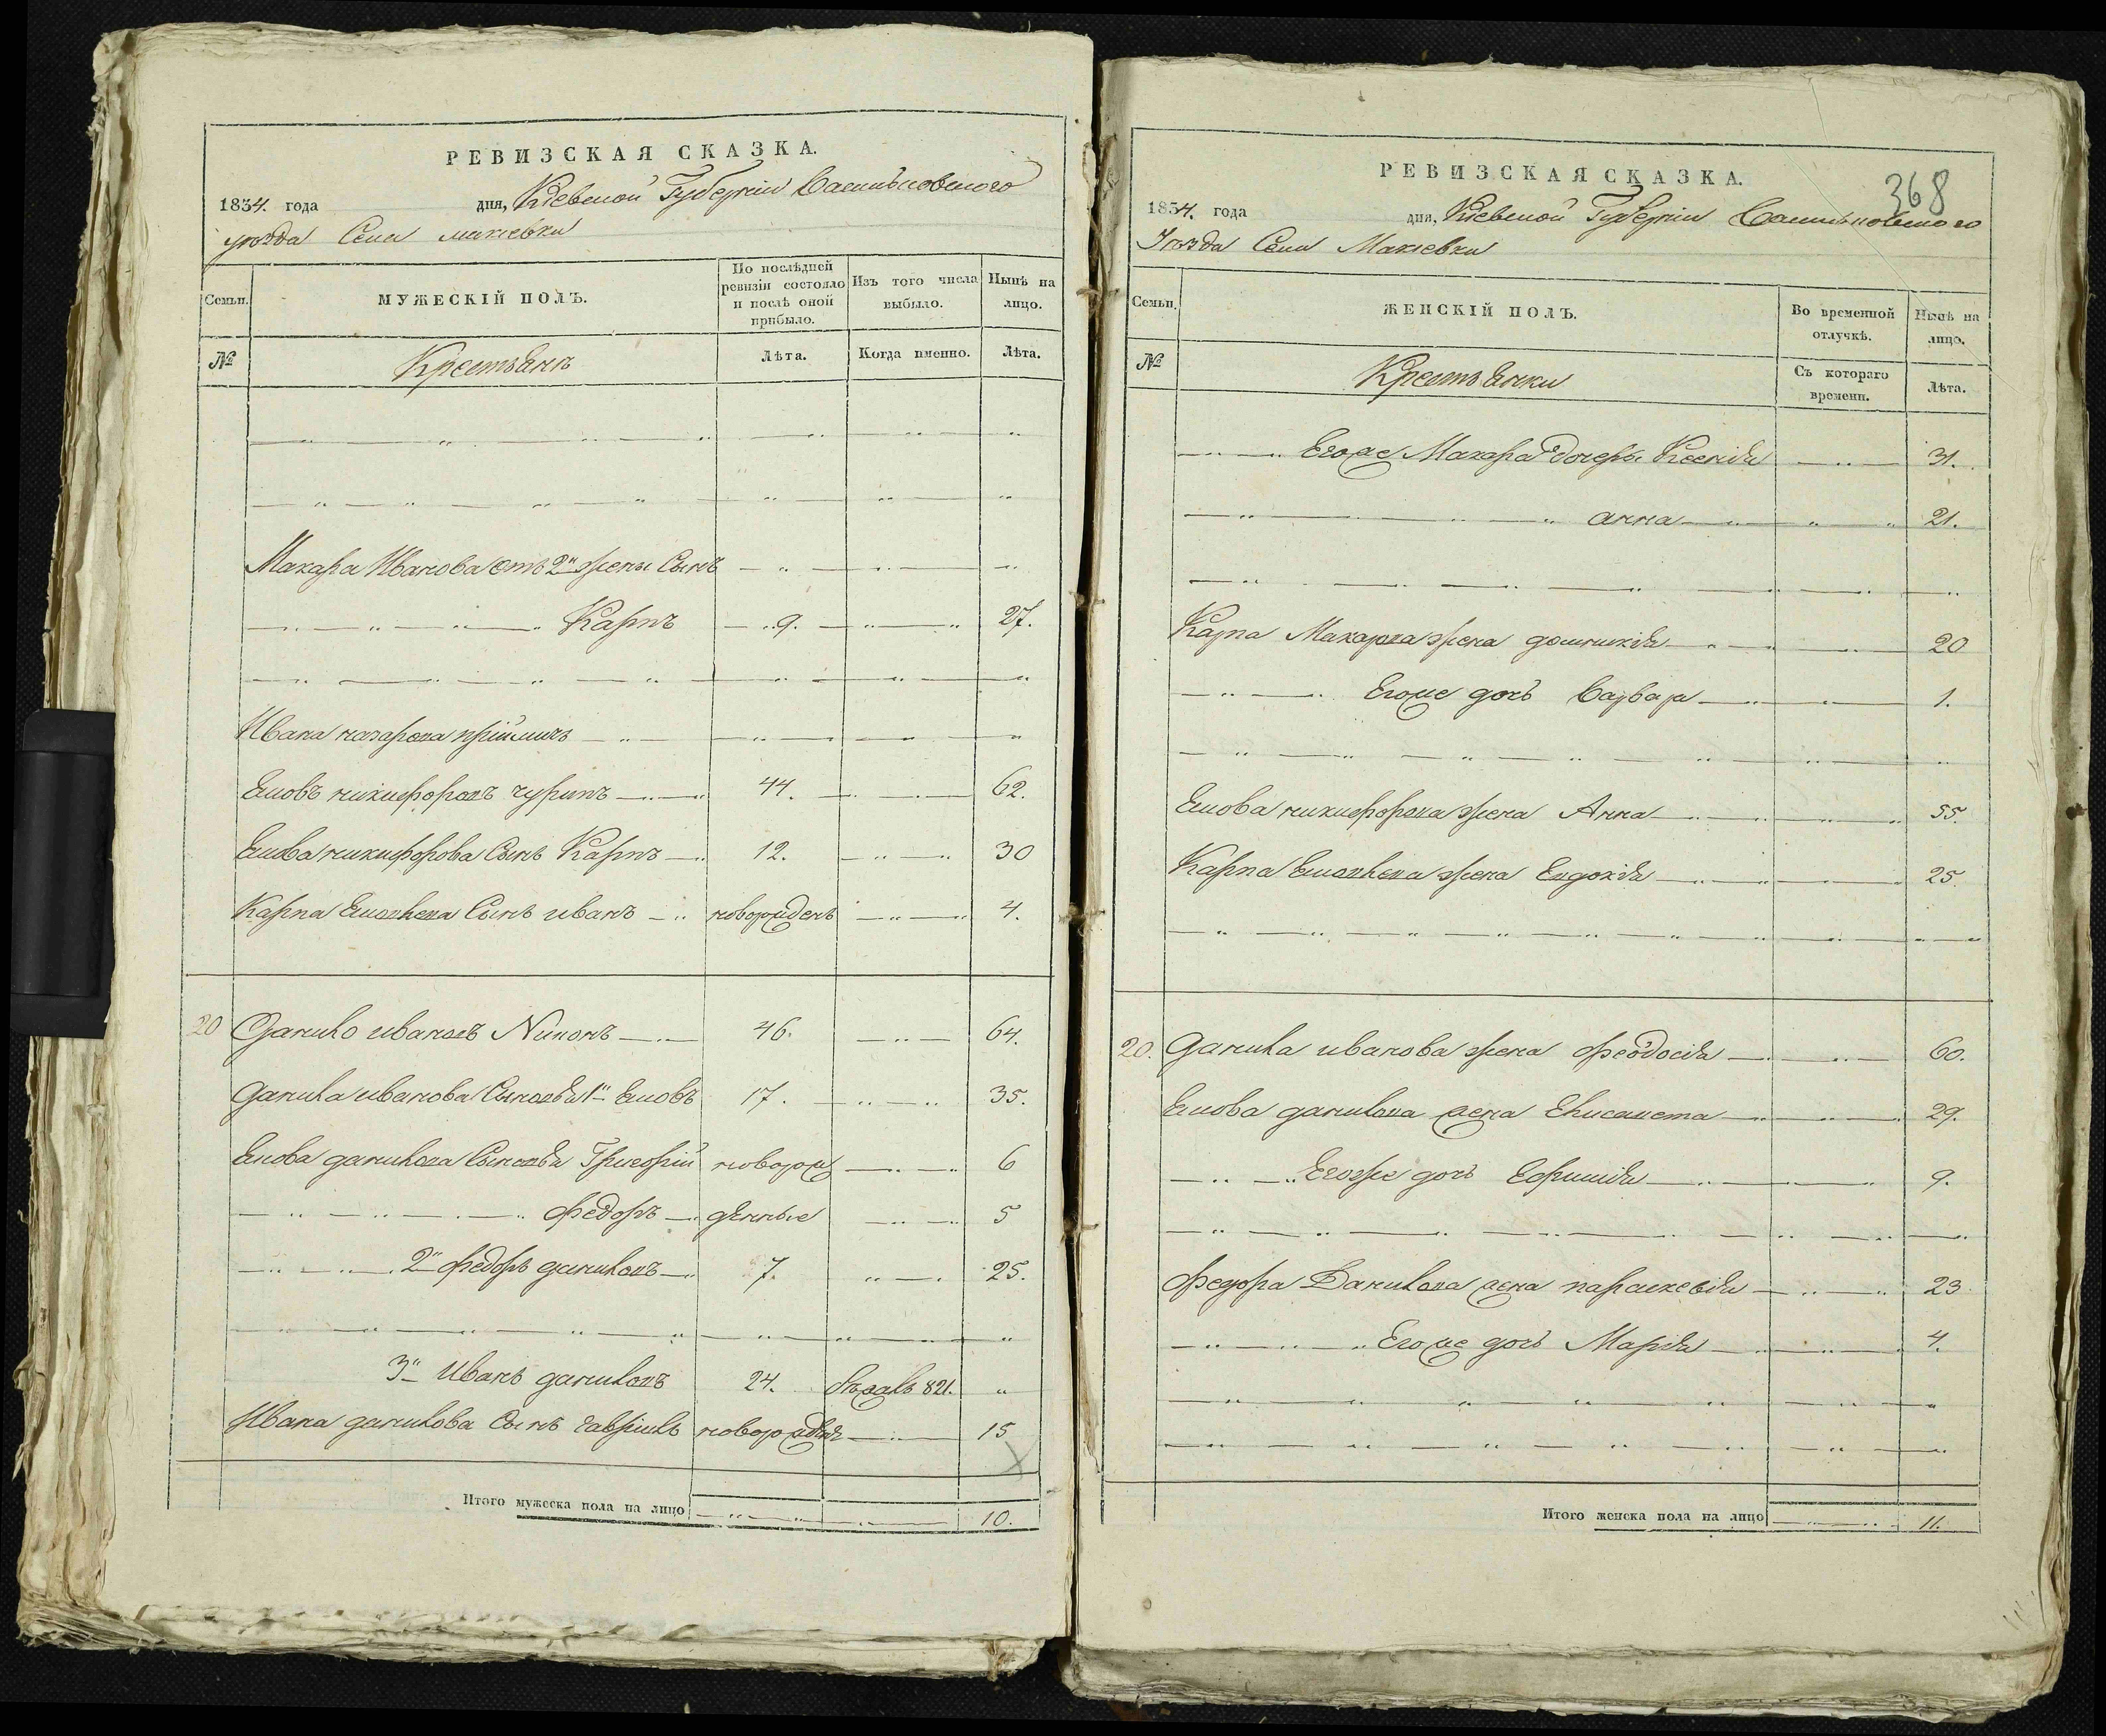 РЕВИЗСКАЯ СКАЗКА.
1834. года дня, Кіевской Губерніи Васильковского
уѣзда Села макіевки
Семьи.
МУЖЕСКІЙ ПОЛЪ.
По послѣдней ревизіи состояло и послѣ оной прибыло.
Изъ того числа выбыло.
Нынѣ на лицо.
№
Крестьянъ
Лѣта.
Когда именно.
Лѣта.
Макара Иванова отъ 2й жены Сынъ
Карпъ 9. 27.
Ивана назарова пріймыть
Яковъ никифоровъ чуринъ 44. 62.
Якова никифорова Сынъ Карпъ 12. 30
Карпа Яковлева Сынъ иванъ новорожденъ 4.
20 Данило ивановъ Никонъ 46. 64.
Данила иванова Сыновья 1й Яковъ 17. 35.
Якова данилова Сыновья Григорій новорож 6
федоръ денные 5
2й федоръ даниловъ 7. 25.
3й Иванъ даниловъ 24. бѣжалъ 821.
Ивана данилова Сынъ гавріилъ новорожден 15
Итого мужеска пола на лицо 10.
368
РЕВИЗСКАЯ СКАЗКА.
1834. года дня, Кіевской Губерніи Васильковского
Уѣзда Села Макіевки
Семьи.
ЖЕНСКІЙ ПОЛЪ.
Во временной отлучкѣ.
Нынѣ на лицо.
№
Крестьянки
Съ котораго времени.
Лѣта.
Егоже Макара дочеры Ксенія 31.
анна 21.
Карпа Макарова жена домникія 20
Егоже дочь Варвара 1.
Якова никифорова жена Анна 55.
Карпа Яковлева жена Евдокія 25.
20. Данила иванова жена феодосія 60.
Якова данилова жена Елисавета 29.
Егоже дочь Ефимія 9.
Федора Данилова жена параскевія 23
Егоже дочь Марія 4.
Итого женска пола на лицо 11.